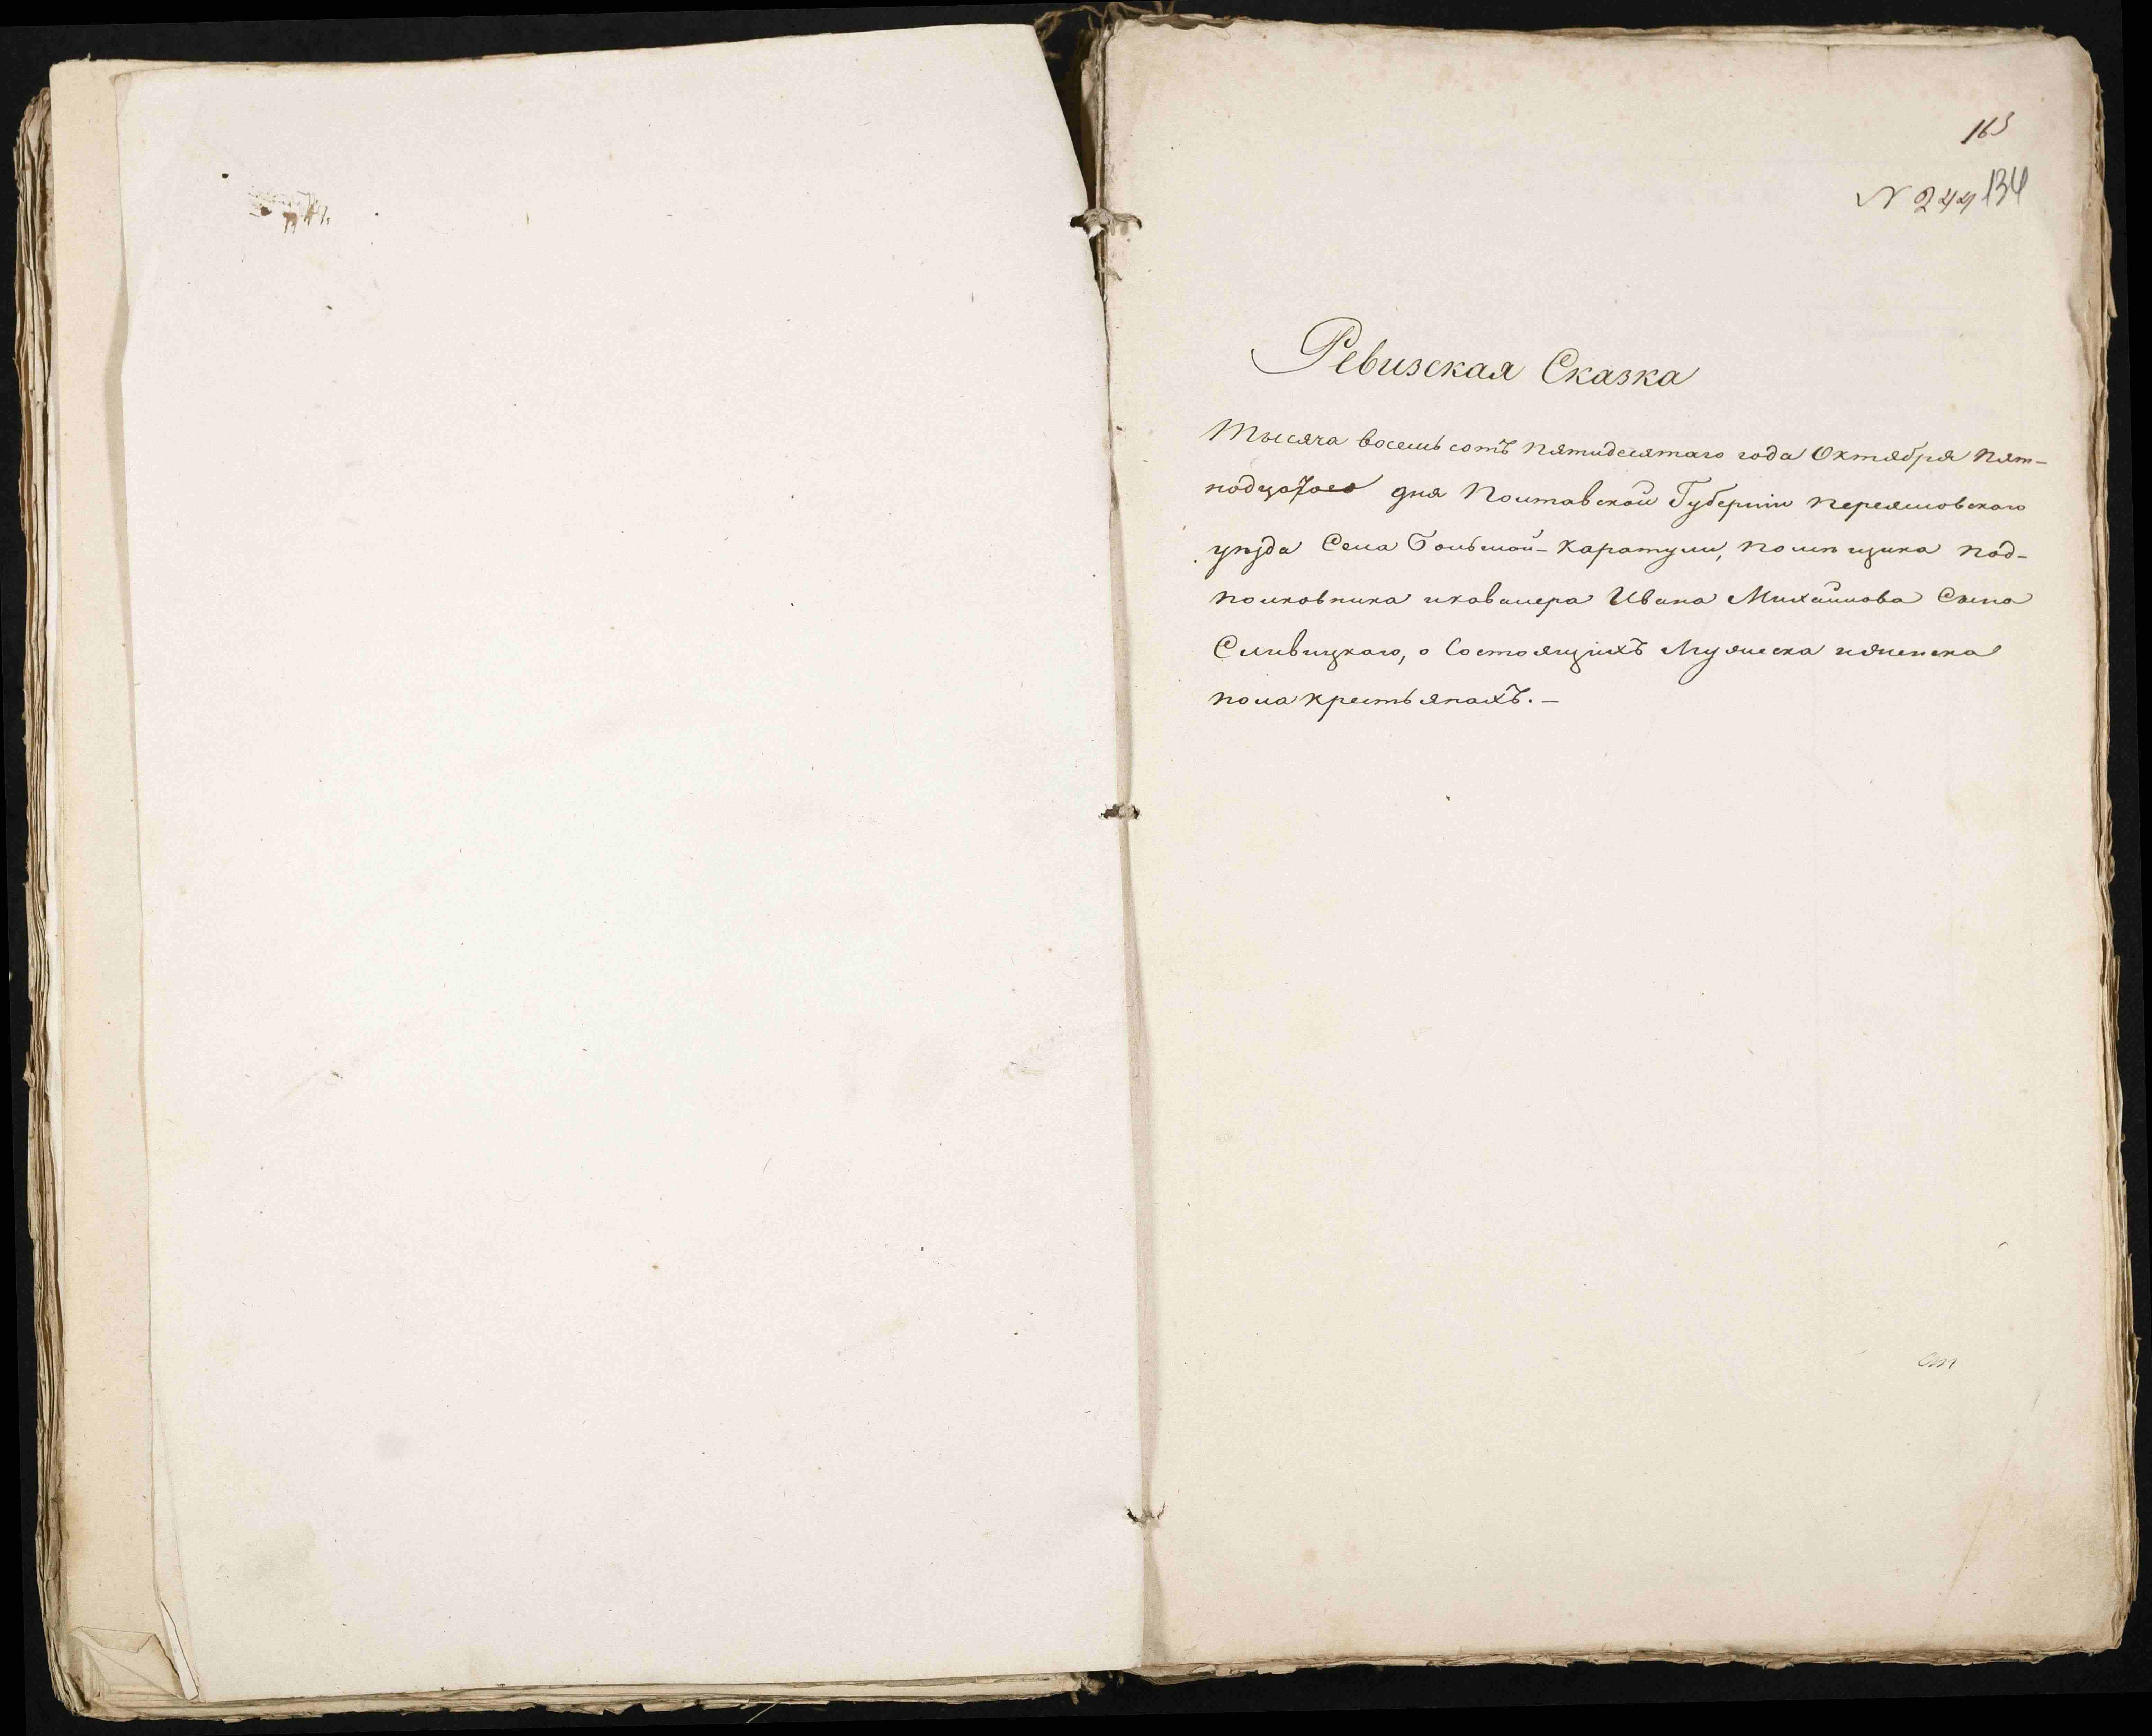 163
N 244 134
Ревизская Сказка
Тысяча восемь сотъ пятидесятаго года Октября пят-
надцатого дня Полтавской Губерніи Переяславского
уѣзда Села Большой-Каратули, помѣщика под-
полковника икавалера Ивана Михайлова Сына
Сливицкаго, о Состоящихъ Мужеска иженска
пола крестьянахъ.-